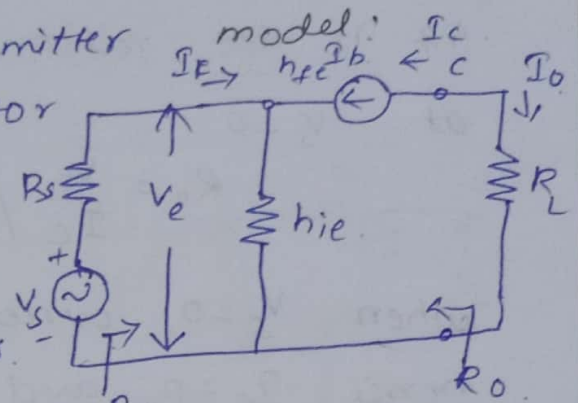 mitter model:
or
I_E → h_fe I_b ← I_c
C
I_o
R_s
V_e
h_ie
R_L
+
V_s
-
R_o